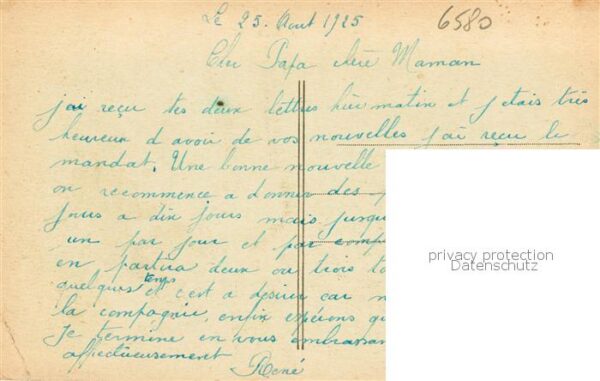 Le 25. Aout 1925
6580
Cher Papa chère Maman
j'ai reçu tes deux lettres hier matin et j etais très
heureux d avoir de vos nouvelles j'ai reçu le
mandat. Une bonne nouvelle
on recommence a donner des
jours a dix jours mais jusqu
un par jour et par comp
en partira deux ou trois
quelques temps et c'est a désirer car
la compagnie, enfin espérons
Je termine en vous embrassan
affectueusement
René
privacy protection
Datenschutz